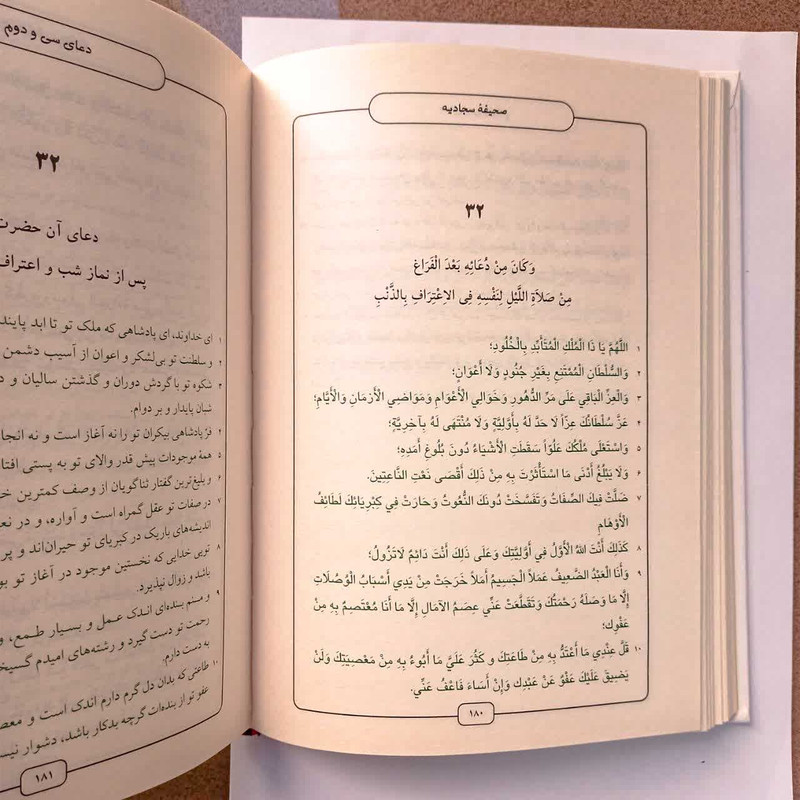 صحیفهٔ سجادیه
۳۲
وَكَانَ مِنْ دُعَائِهِ بَعْدَ الْفَرَاغِ
مِنْ صَلاَةِ اللَّيْلِ لِنَفْسِهِ فِي الاِعْتِرَافِ بِالذَّنْبِ
۱ اللَّهُمَّ يَا ذَا الْمُلْكِ الْمُتَأَبِّدِ بِالْخُلُودِ؛
۲ وَالسُّلْطَانِ الْمُمْتَنِعِ بِغَيْرِ جُنُودٍ وَلَا أَعْوَانٍ؛
۳ وَالْعِزِّ الْبَاقِي عَلَى مَرِّ الدُّهُورِ وَخَوَالِي الْأَعْوَامِ وَمَوَاضِي الْأَزْمَانِ وَالْأَيَّامِ؛
۴ عَزَّ سُلْطَانُكَ عِزّاً لَا حَدَّ لَهُ بِأَوَّلِيَّةٍ وَلَا مُنْتَهَى لَهُ بِآخِرِيَّةٍ؛
۵ وَاسْتَعْلَى مُلْكُكَ عُلُوّاً سَقَطَتِ الْأَشْيَاءُ دُونَ بُلُوغِ أَمَدِهِ؛
۶ وَلَا يَبْلُغُ أَدْنَى مَا اسْتَأْثَرْتَ بِهِ مِنْ ذَلِكَ أَقْصَى نَعْتِ النَّاعِتِينَ.
۷ ضَلَّتْ فِيكَ الصِّفَاتُ وَتَفَسَّخَتْ دُونَكَ النُّعُوتُ وَحَارَتْ فِي كِبْرِيَائِكَ لَطَائِفُ
الْأَوْهَامِ
۸ كَذَلِكَ أَنْتَ اللهُ الْأَوَّلُ فِي أَوَّلِيَّتِكَ وَعَلَى ذَلِكَ أَنْتَ دَائِمٌ لَاتَزُولُ؛
۹ وَأَنَا الْعَبْدُ الضَّعِيفُ عَمَلاً الْجَسِيمُ أَمَلاً خَرَجَتْ مِنْ يَدِي أَسْبَابُ الْوُصُلَاتِ
إِلَّا مَا وَصَلَهُ رَحْمَتُكَ وَتَقَطَّعَتْ عَنِّي عِصَمُ الآمَالِ إِلَّا مَا أَنَا مُعْتَصِمٌ بِهِ مِنْ
عَفْوِكَ؛
۱۰ قَلَّ عِنْدِي مَا أَعْتَدُّ بِهِ مِنْ طَاعَتِكَ و كَثُرَ عَلَيَّ مَا أَبُوءُ بِهِ مِنْ مَعْصِيَتِكَ وَلَنْ
يَضِيقَ عَلَيْكَ عَفْوٌ عَنْ عَبْدِكَ وَإِنْ أَسَاءَ فَاعْفُ عَنِّي.
۱۸۰
دعای سی و دوم
۳۲
دعای آن حضرت
پس از نماز شب و اعتراف
۱ ای خداوند، ای پادشاهی که ملک تو تا ابد پایند
۲ و سلطنت تو بی‌لشکر و اعوان از آسیب دشمن
۳ شکوه تو با گردش دوران و گذشتن سالیان و د
شبان پایدار و بر دوام.
۴ فرّ پادشاهی بیکران تو را نه آغاز است و نه انجا
۵ همهٔ موجودات پیش قدر والای تو به پستی افتا
۶ و بلیغ‌ترین گفتار ثناگویان از وصف کمترین خ
۷ در صفات تو عقل گمراه است و آواره، و در نع
اندیشه‌های باریک در کبریای تو حیران‌اند و پر
۸ تویی خدایی که نخستین موجود در آغاز تو بو
باشد و زوال نپذیرد.
۹ و منم بنده‌ای اندک عمل و بسیار طمع، و
رحمت تو دست گیرد و رشته‌های امیدم گسیخ
به دست دارم.
۱۰ طاعتی که بدان دل گرم دارم اندک است و معص
عفو تو از بنده‌ات گرچه بدکار باشد، دشوار نیس
۱۸۱